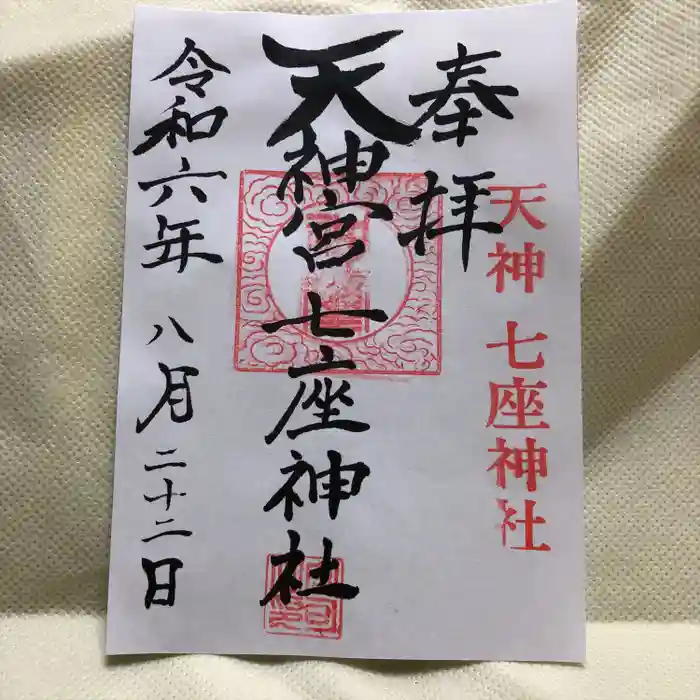 奉拝
天神 七座神社
天神宮七座神社
令和六年 八月二十二日